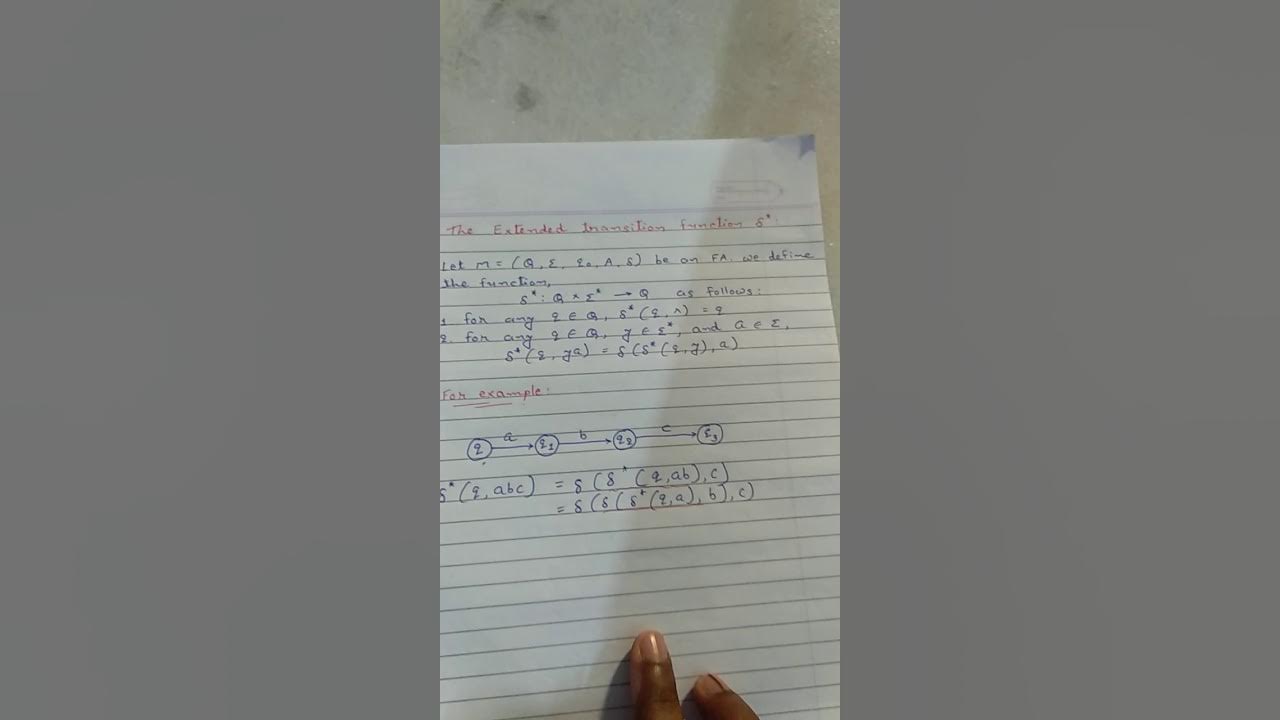 The Extended transition function δ*:
Let M = (Q, Σ, q₀, A, δ) be an FA. we define
the function,
δ*: Q × Σ* → Q as follows:
1. for any q ∈ Q, δ*(q, ∧) = q
2. for any q ∈ Q, y ∈ Σ*, and a ∈ Σ,
δ*(q, ya) = δ(δ*(q, y), a)
For example:
q a q₁ b q₂ c q₃
δ*(q, abc) = δ(δ*(q, ab), c)
= δ(δ(δ*(q, a), b), c)